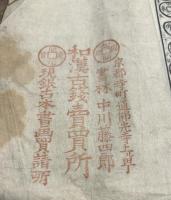 京都寺町通佛光寺上ル町
書林 中川藤四郎
和漢古錢賣買所
現銀古本書画買請所